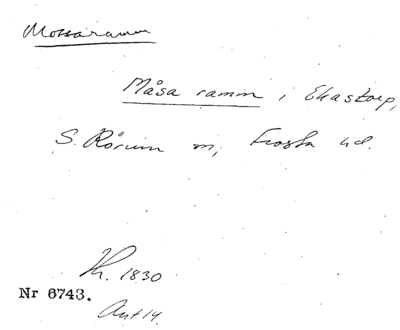 Mossaramm
Måsa ramm i Ekastorp,
S. Rörum sn, Frosta hd.
Th. 1830
Nr 6743.
Ant 14.